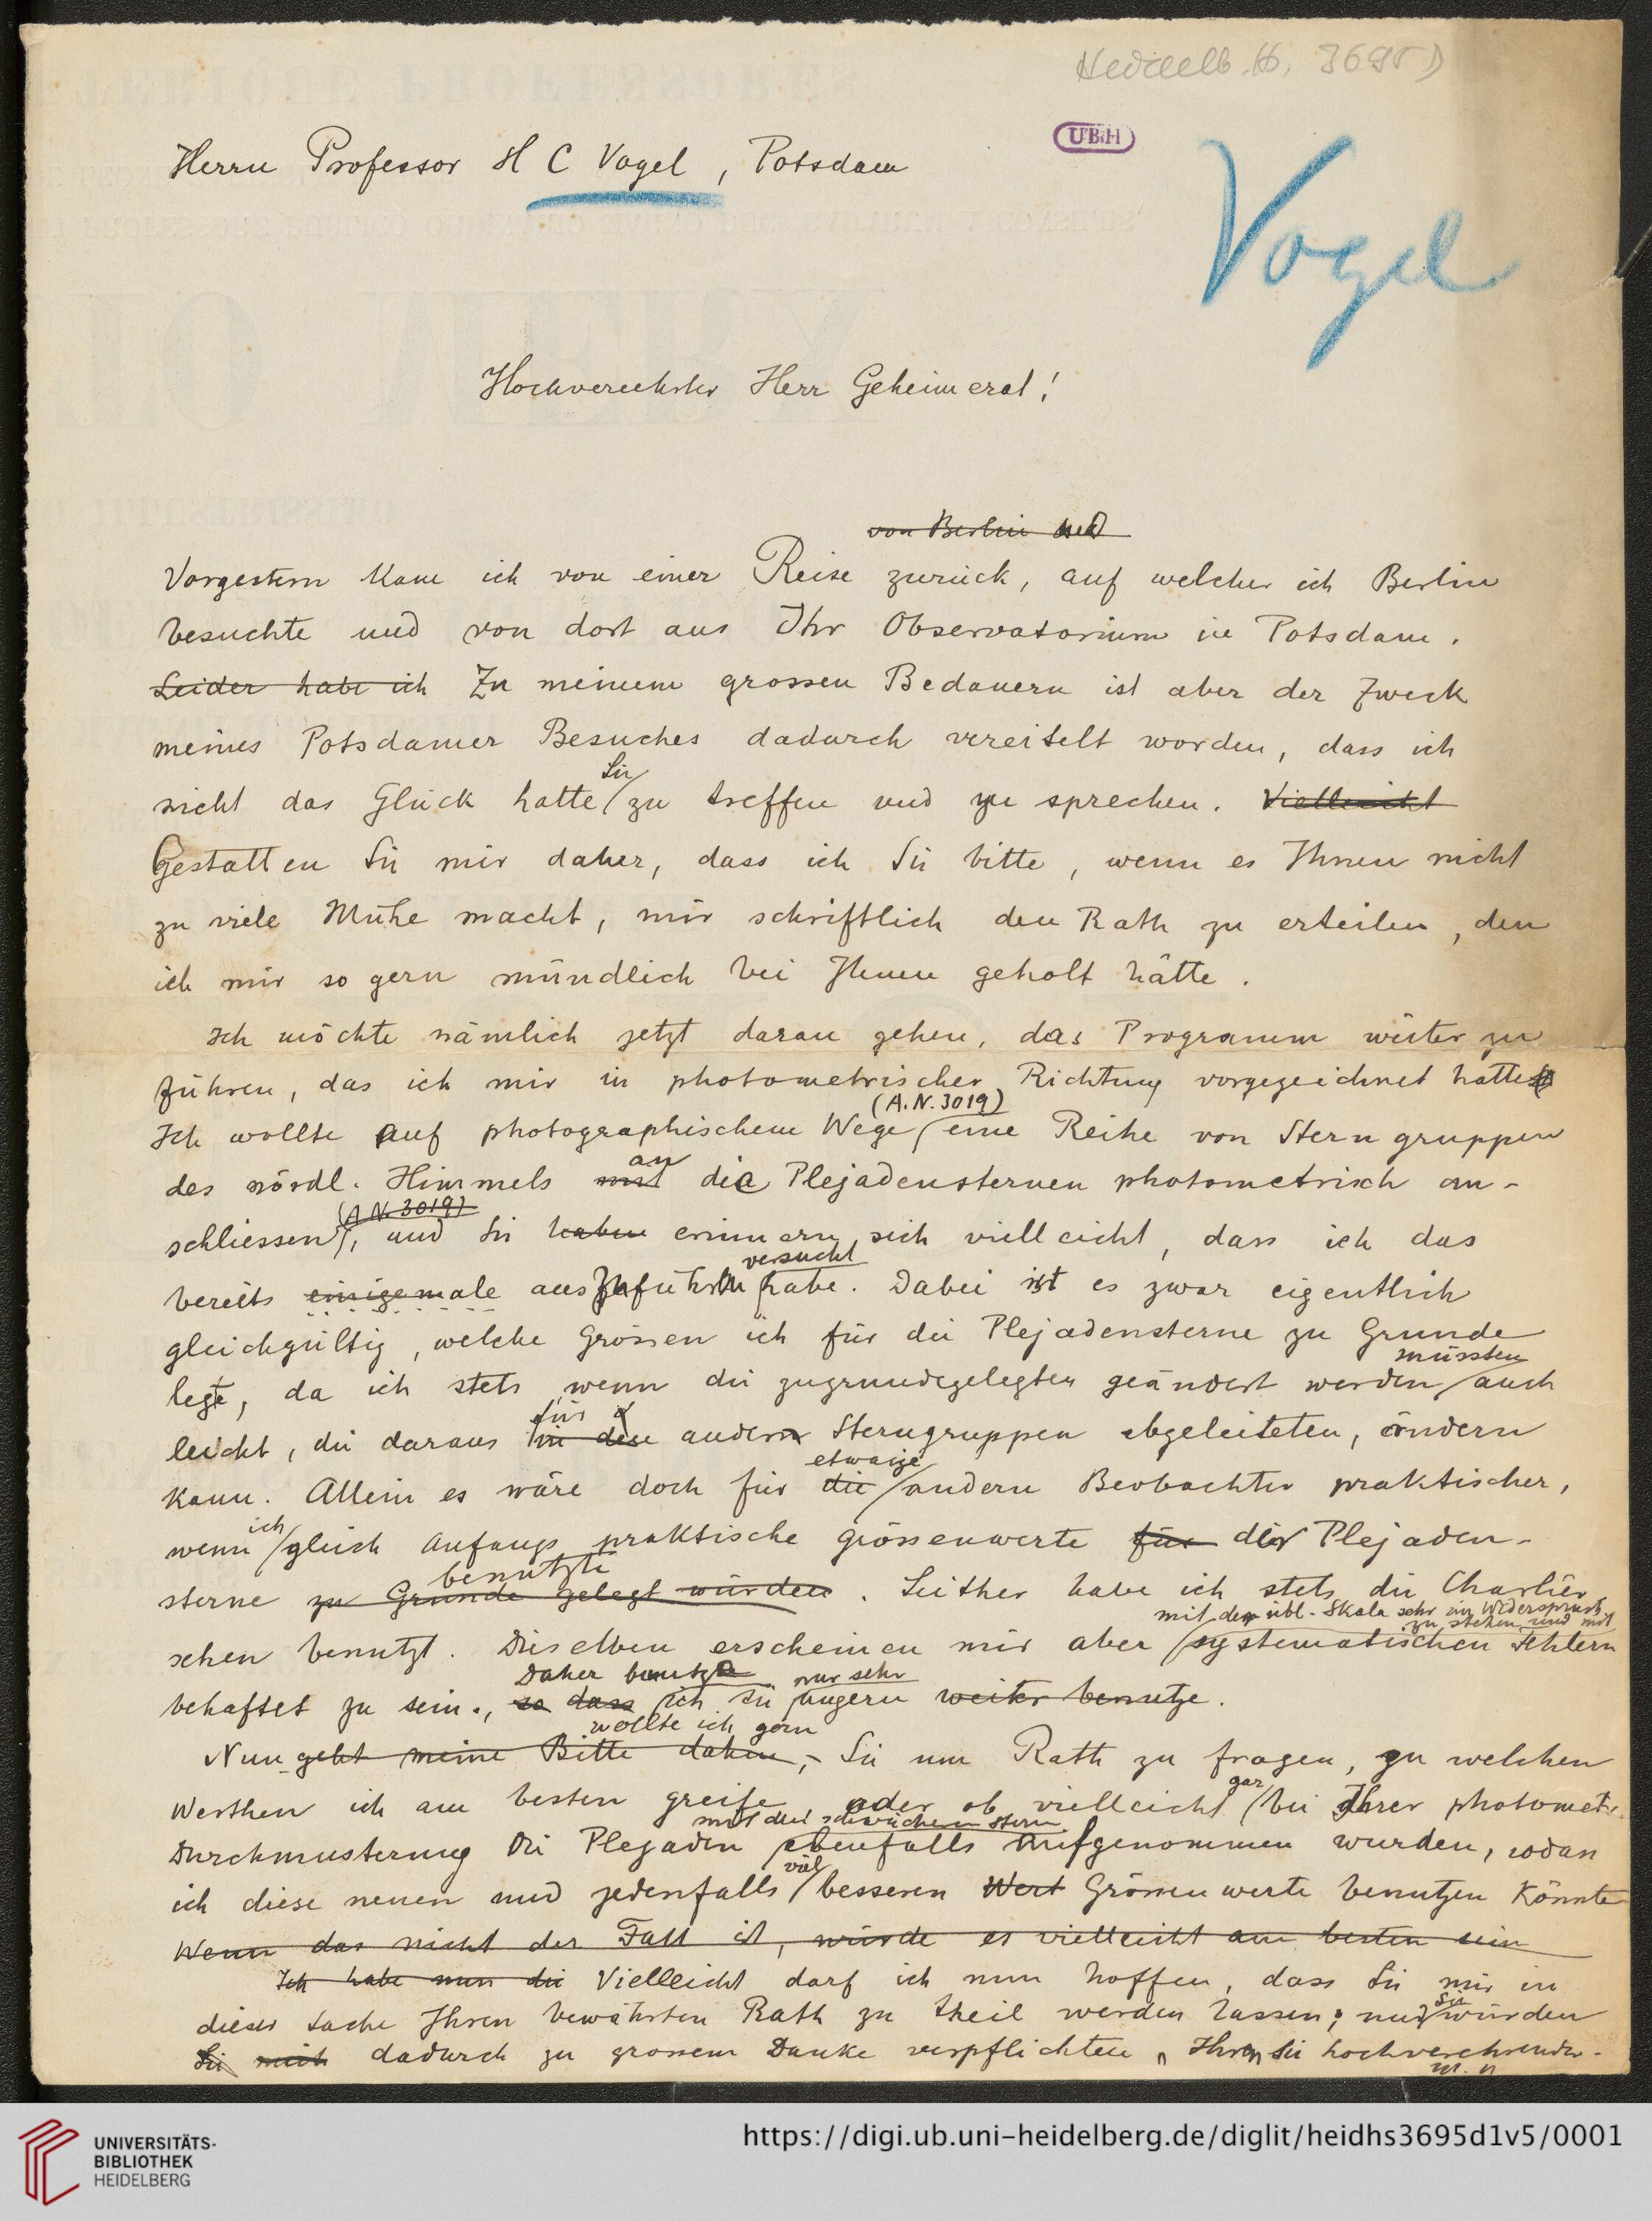 Heidelb. Hs. 3695 D
UBH
Herrn Professor H C Vogel, Potsdam
Vogel
Hochverehrter Herr Geheimerat!
von Berlin und
Vorgestern kam ich von einer Reise zurück, auf welcher ich Berlin
besuchte und von dort aus Ihr Observatorium in Potsdam.
Leider habe ich Zu meinem grossen Bedauern ist aber der Zweck
meines Potsdamer Besuches dadurch vereitelt worden, dass ich
Sie
nicht das Glück hatte zu treffen und zu sprechen. Vielleicht
Gestatten Sie mir daher, dass ich Sie bitte, wenn es Ihnen nicht
zu viele Mühe macht, mir schriftlich den Rath zu erteilen, den
ich mir so gern mündlich bei Ihnen geholt hätte.
Ich möchte nämlich jetzt daran gehen, das Programm weiter zu
führen, das ich mir in photometrischer Richtung vorgezeichnet hatte
(A.N. 3019)
Ich wollte auf photographischem Wege eine Reihe von Sterngruppen
an
des nördl. Himmels mit die Plejadensternen photometrisch an-
(A.N. 3019)
schliessen, und Sie haben erinnern sich vielleicht, dass ich das
versucht
bereits einigemale auszuführen habe. Dabei ist es zwar eigentlich
gleichgültig, welche Grössen ich für die Plejadensterne zu Grunde
müssten
legte, da ich stets, wenn die zugrundegelegten geändert werden auch
für d
leicht, die daraus in den andern Sterngruppen abgeleiteten, ändern
etwaige
kann. Allein es wäre doch für die andern Beobachter praktischer,
ich
wenn gleich Anfangs praktische Grössenwerte für der Plejaden-
benutzte
sterne zu Grunde gelegt würden. Seither habe ich stets die Charlier
mit der übl. Skala sehr im Widerspruch
zu stehen und mit
schen benutzt. Dieselben erscheinen mir aber systematischen Fehlern
Daher benutze nur sehr
behaftet zu sein., so dass ich sie ungern weiter benutze.
wollte ich gern
Nun geht meine Bitte dahin, Sie um Rath zu fragen, zu welchen
gar
Werthen ich am besten greife oder ob vielleicht bei Ihrer photometr.
mit den schwächern Stern.
Durchmusterung die Plejaden ebenfalls aufgenommen wurden, sodass
viel
ich diese neuen und jedenfalls besseren Wert Grössenwerte benutzen könnte
Wenn das nicht der Fall ist, würde es vielleicht am besten sein
Ich habe nun die Vielleicht darf ich nun hoffen, dass Sie mir in
Sie
dieser Sache Ihren bewährten Rath zu theil werden lassen; und würden
Sie mich dadurch zu grossem Danke verpflichten Ihren Sie hochverehrenden
UNIVERSITÄTS-
BIBLIOTHEK
HEIDELBERG
https://digi.ub.uni-heidelberg.de/diglit/heidhs3695d1v5/0001